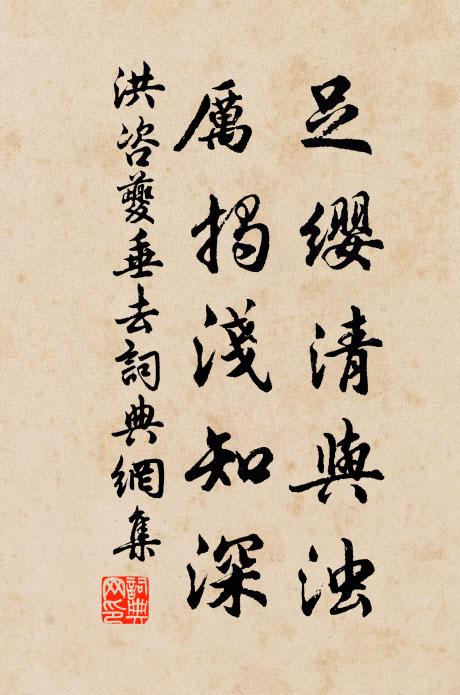 足缨清与浊
厲揭淺知深
洪咨夔垂去詞典網集
詞典